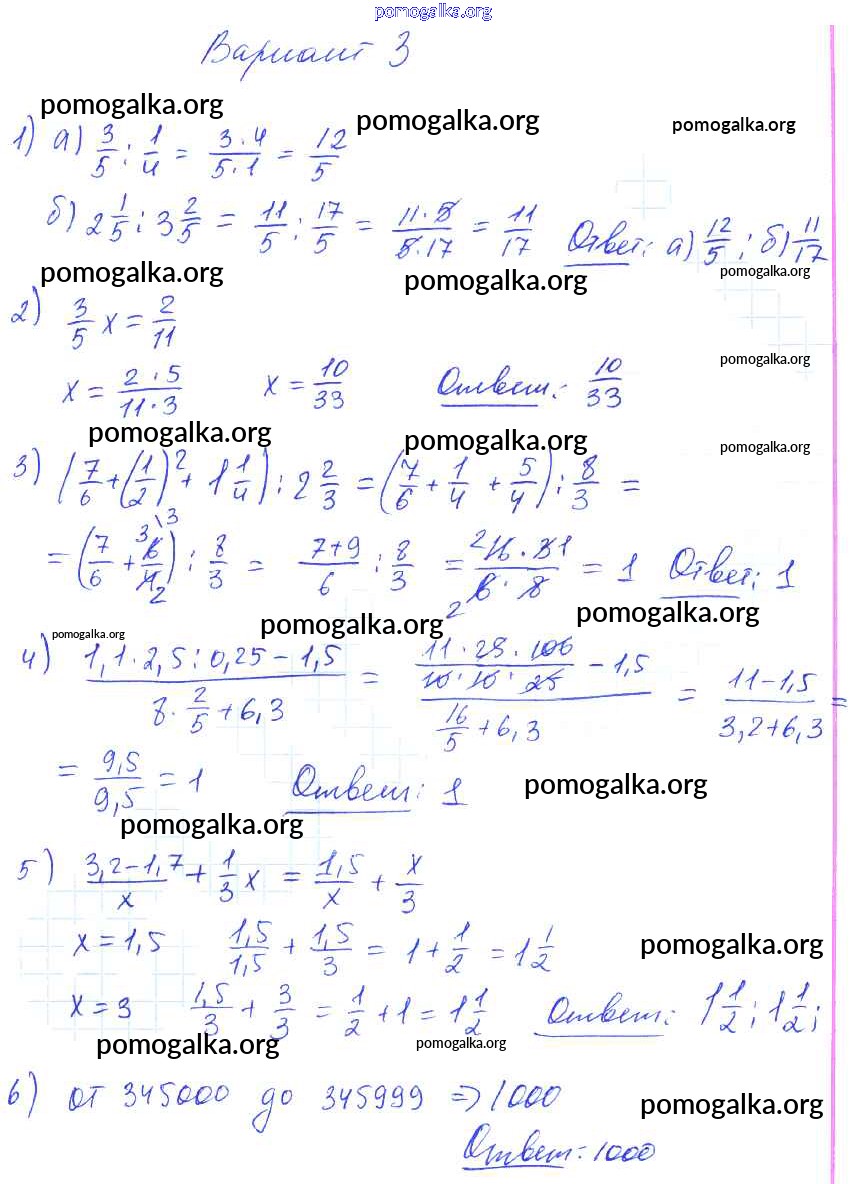 pomogalka.org
Вариант 3
pomogalka.org pomogalka.org pomogalka.org
1) а) 3/5 : 1/4 = 3·4/5·1 = 12/5
б) 2 1/5 : 3 2/5 = 11/5 : 17/5 = 11·5/5·17 = 11/17 Ответ: а) 12/5; б) 11/17
pomogalka.org pomogalka.org pomogalka.org
2) 3/5 x = 2/11
pomogalka.org
x = 2·5/11·3 x = 10/33 Ответ: 10/33
pomogalka.org pomogalka.org pomogalka.org
3) (7/6 + (1/2)² + 1 1/4) : 2 2/3 = (7/6 + 1/4 + 5/4) : 8/3 =
= (7/6 + 3 6/4 2 \3) : 8/3 = 7+9/6 : 8/3 = 2 16·3 1/2 6·8 = 1 Ответ: 1
pomogalka.org pomogalka.org pomogalka.org
4) 1,1·2,5:0,25−1,5 / 8·2/5+6,3 = 11·25·100/10·10·25 − 1,5 / 16/5+6,3 = 11−1,5/3,2+6,3 =
= 9,5/9,5 = 1 Ответ: 1 pomogalka.org
pomogalka.org
5) 3,2−1,7/x + 1/3 x = 1,5/x + x/3
x = 1,5 1,5/1,5 + 1,5/3 = 1 + 1/2 = 1 1/2 pomogalka.org
x = 3 1,5/3 + 3/3 = 1/2 + 1 = 1 1/2 Ответ: 1 1/2; 1 1/2;
pomogalka.org pomogalka.org
6) от 345000 до 345999 => 1000 pomogalka.org
Ответ: 1000